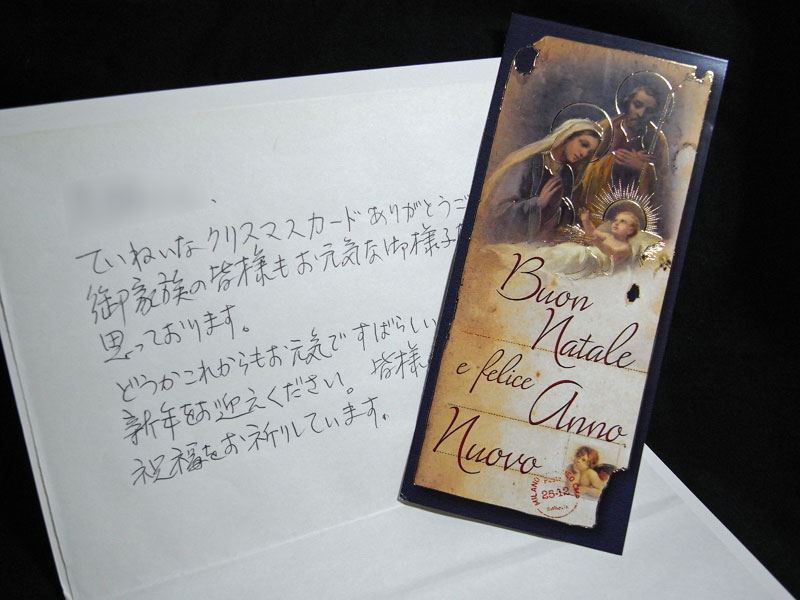 ていねいなクリスマスカードありがとうご
御家族の皆様もお元気な御様子
思っております。
どうかこれからもお元気ですばらしい
新年をお迎えください。皆様
祝福をお祈りしています。
Buon
Natale
e felice
Anno
Nuovo
MILANO
25-12